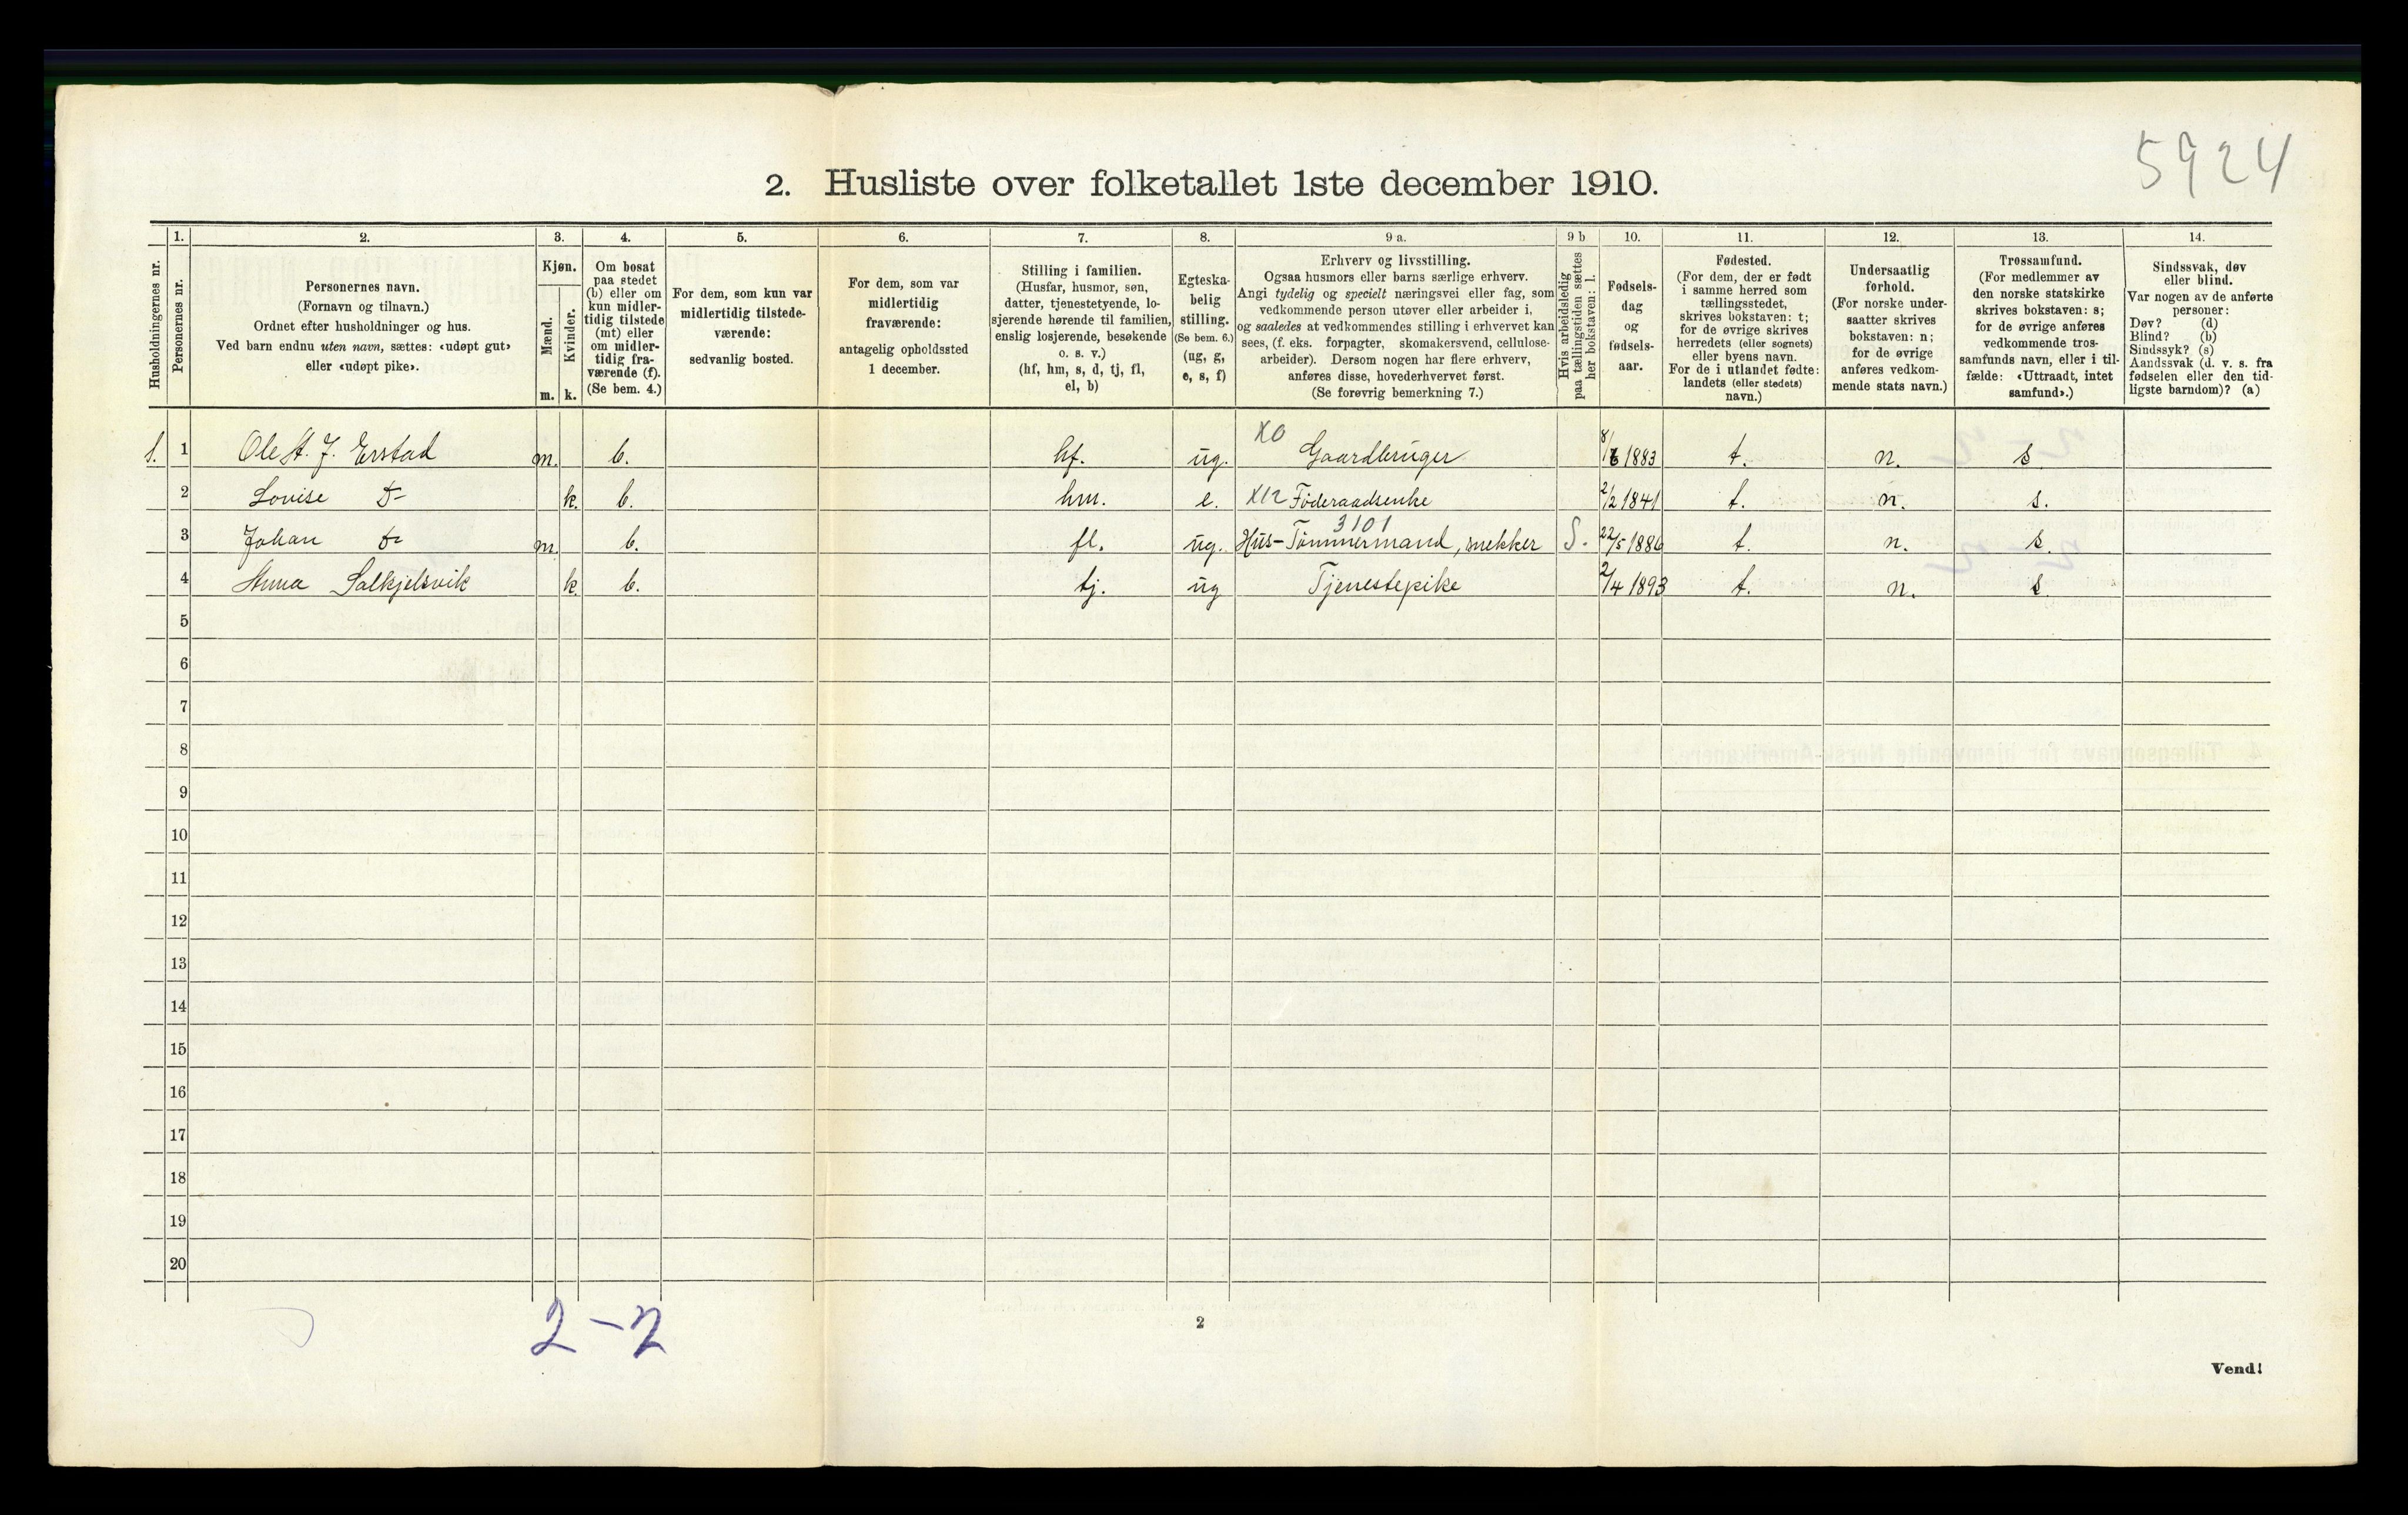 5924
2. Husliste over folketallet 1ste december 1910.
Husholdningernes nr.
1.
Personernes nr.
2.
Personernes navn.
(Fornavn og tilnavn.)
Ordnet efter husholdninger og hus.
Ved barn endnu uten navn, sættes: «udøpt gut»
eller «udøpt pike».
3.
Kjøn.
Mænd.
Kvinder.
m. k.
4.
Om bosat
paa stedet
(b) eller om
kun midler-
tidig tilstede
(mt) eller
om midler-
tidig fra-
værende (f).
(Se bem. 4.)
5.
For dem, som kun var
midlertidig tilstede-
værende:
sedvanlig bosted.
6.
For dem, som var
midlertidig
fraværende:
antagelig opholdssted
1 december.
7.
Stilling i familien.
(Husfar, husmor, søn,
datter, tjenestetyende, lo-
sjerende hørende til familien,
enslig losjerende, besøkende
o. s. v.)
(hf, hm, s, d, tj, fl,
el, b)
8.
Egteska-
belig
stilling.
(Se bem. 6.)
(ug, g,
e, s, f)
9 a.
Erhverv og livsstilling.
Ogsaa husmors eller barns særlige erhverv.
Angi tydelig og specielt næringsvei eller fag, som
vedkommende person utøver eller arbeider i,
og saaledes at vedkommendes stilling i erhvervet kan
sees, (f. eks. forpagter, skomakersvend, cellulose-
arbeider). Dersom nogen har flere erhverv,
anføres disse, hovederhvervet først.
(Se forøvrig bemerkning 7.)
9 b
Hvis arbeidsledig
paa tællingstiden sættes
her bokstaven: l.
10.
Fødsels-
dag
og
fødsels-
aar.
11.
Fødested.
(For dem, der er født
i samme herred som
tællingsstedet,
skrives bokstaven: t;
for de øvrige skrives
herredets (eller sognets)
eller byens navn.
For de i utlandet fødte:
landets (eller stedets)
navn.)
12.
Undersaatlig
forhold.
(For norske under-
saatter skrives
bokstaven: n;
for de øvrige
anføres vedkom-
mende stats navn.)
13.
Trossamfund.
(For medlemmer av
den norske statskirke
skrives bokstaven: s;
for de øvrige anføres
vedkommende tros-
samfunds navn, eller i til-
fælde: «Uttraadt, intet
samfund».)
14.
Sindssvak, døv
eller blind.
Var nogen av de anførte
personer:
Døv? (d)
Blind? (b)
Sindssyk? (s)
Aandssvak (d. v. s. fra
fødselen eller den tid-
ligste barndom)? (a)
X0
1. 1 Ole St. J. Erstad m. b. hf. ug. Gaardbruger 8/6 1883 t. n. s
2 Lovise D- k. b. hm. e. X12 Föderaadsenke 2/2 1841 t. n. s.
3101
3 Johan D- m. b. fl. ug. Hus-Tömmermand, snekker S. 22/5 1886 t. n. s.
4 Anna Salkjelsvik k. b. tj. ug Tjenestepike 2/4 1893 t. n. s.
5
6
7
8
9
10
11
12
13
14
15
16
17
18
19
20
2-2
2
Vend!